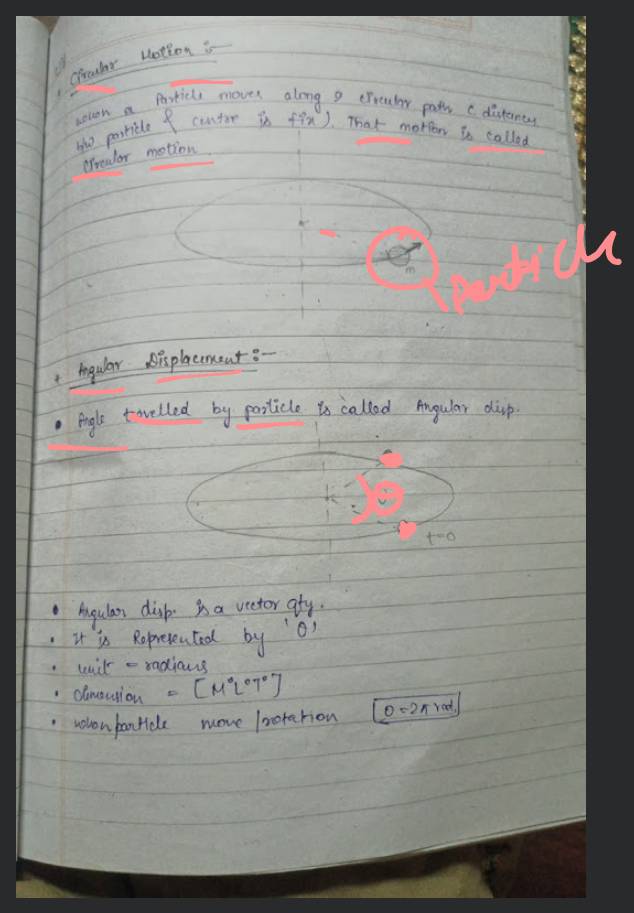 Circular Motion :-
when a Particle moves along a circular path ( distance
b/w particle & center is fix). That motion is called
Circular motion.
m
Particle
+ Angular Displacement :-
• Angle travelled by particle is called Angular disp.
θ
t=0
• Angular disp. is a vector qty.
• It is Represented by 'θ'
• unit = radians
• dimension = [M°L°T°]
• when particle move 1 rotation [θ = 2π rad.]